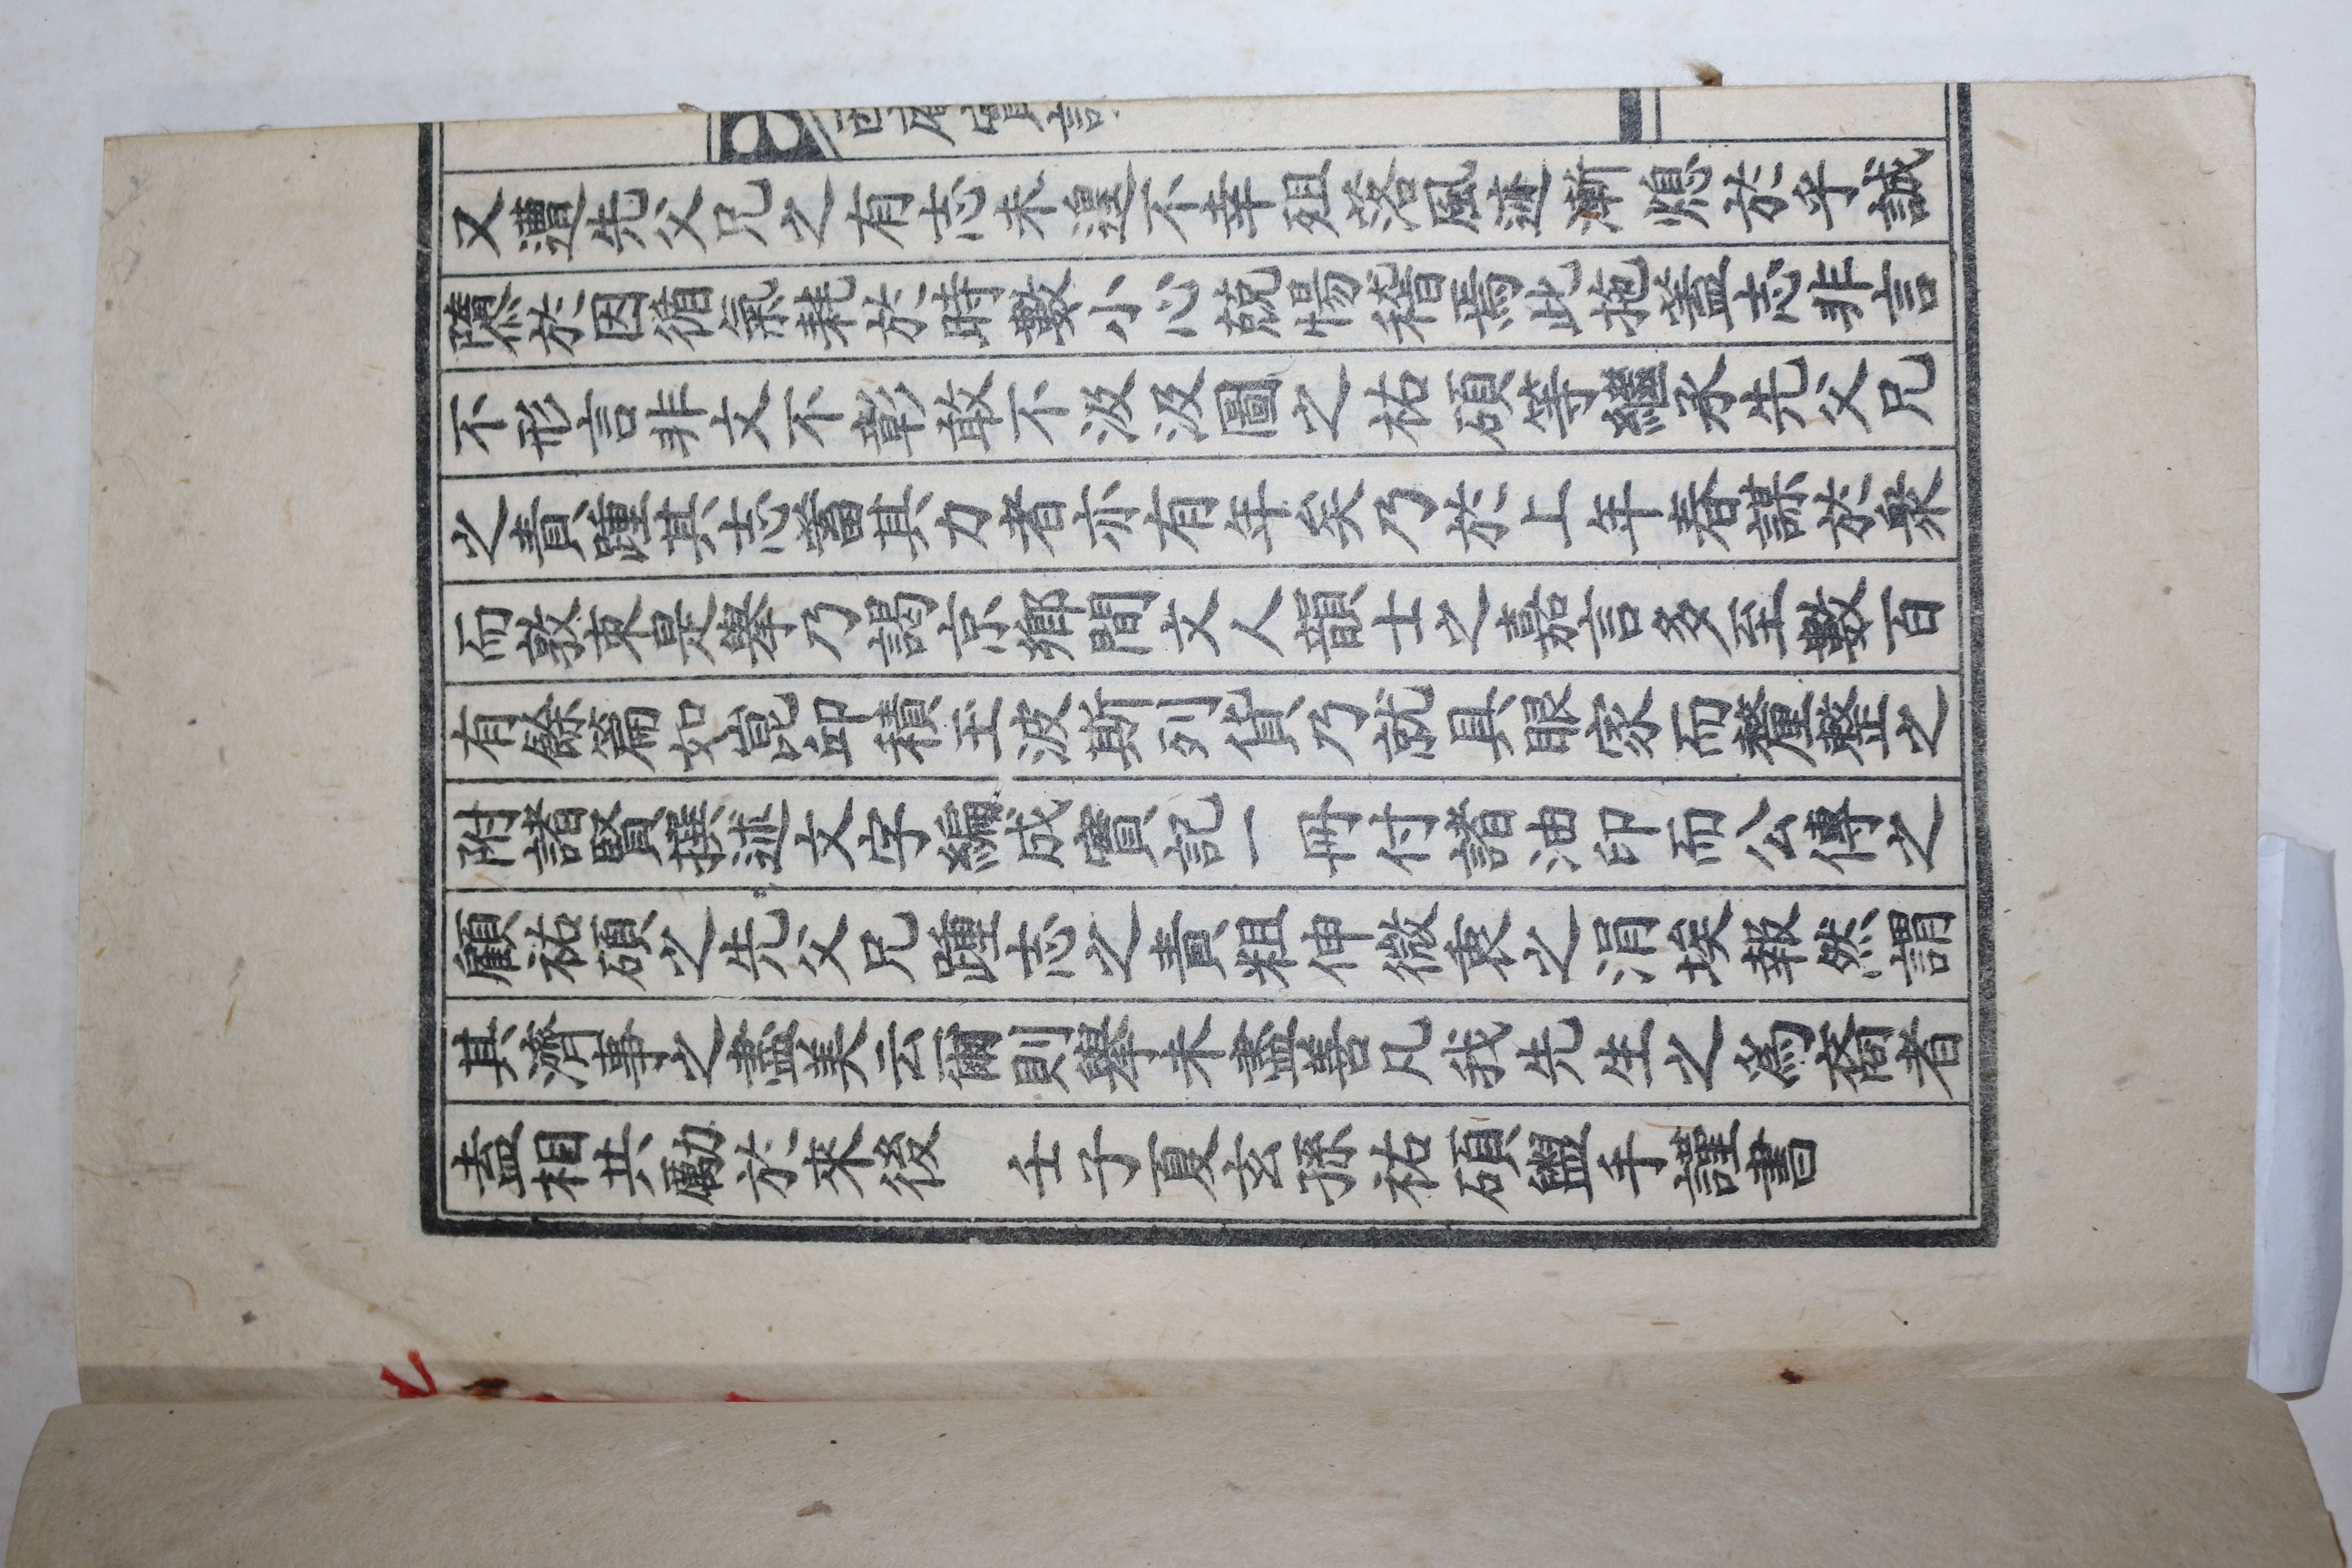 又遭先父兄之有志未遑不幸殂落風迹漸熄於乎誠
隳於因循氣耗於時數小心兢惕稽焉此拖蓋志非言
不形言非文不彰敢不汲汲圖之祐碩等繼承先父兄
之責踵其志蓄其力者亦有年矣乃於上年春謀於衆
而敦束是擧乃謁京鄉間文人韻士之嘉言多至數百
有餘篇如崑邱積玉波斯列貨乃就具眼家而釐整之
附諸賢撰述文字編成實記一冊付諸油印而公傳之
顧祐碩之先父兄踵志之責粗伸微衷之涓埃報然謂
其濟事之盡美云爾則擧未盡善凡我先生之爲裔者
盍相共勵於來後 壬子夏玄孫祐碩盥手謹書
庵實記